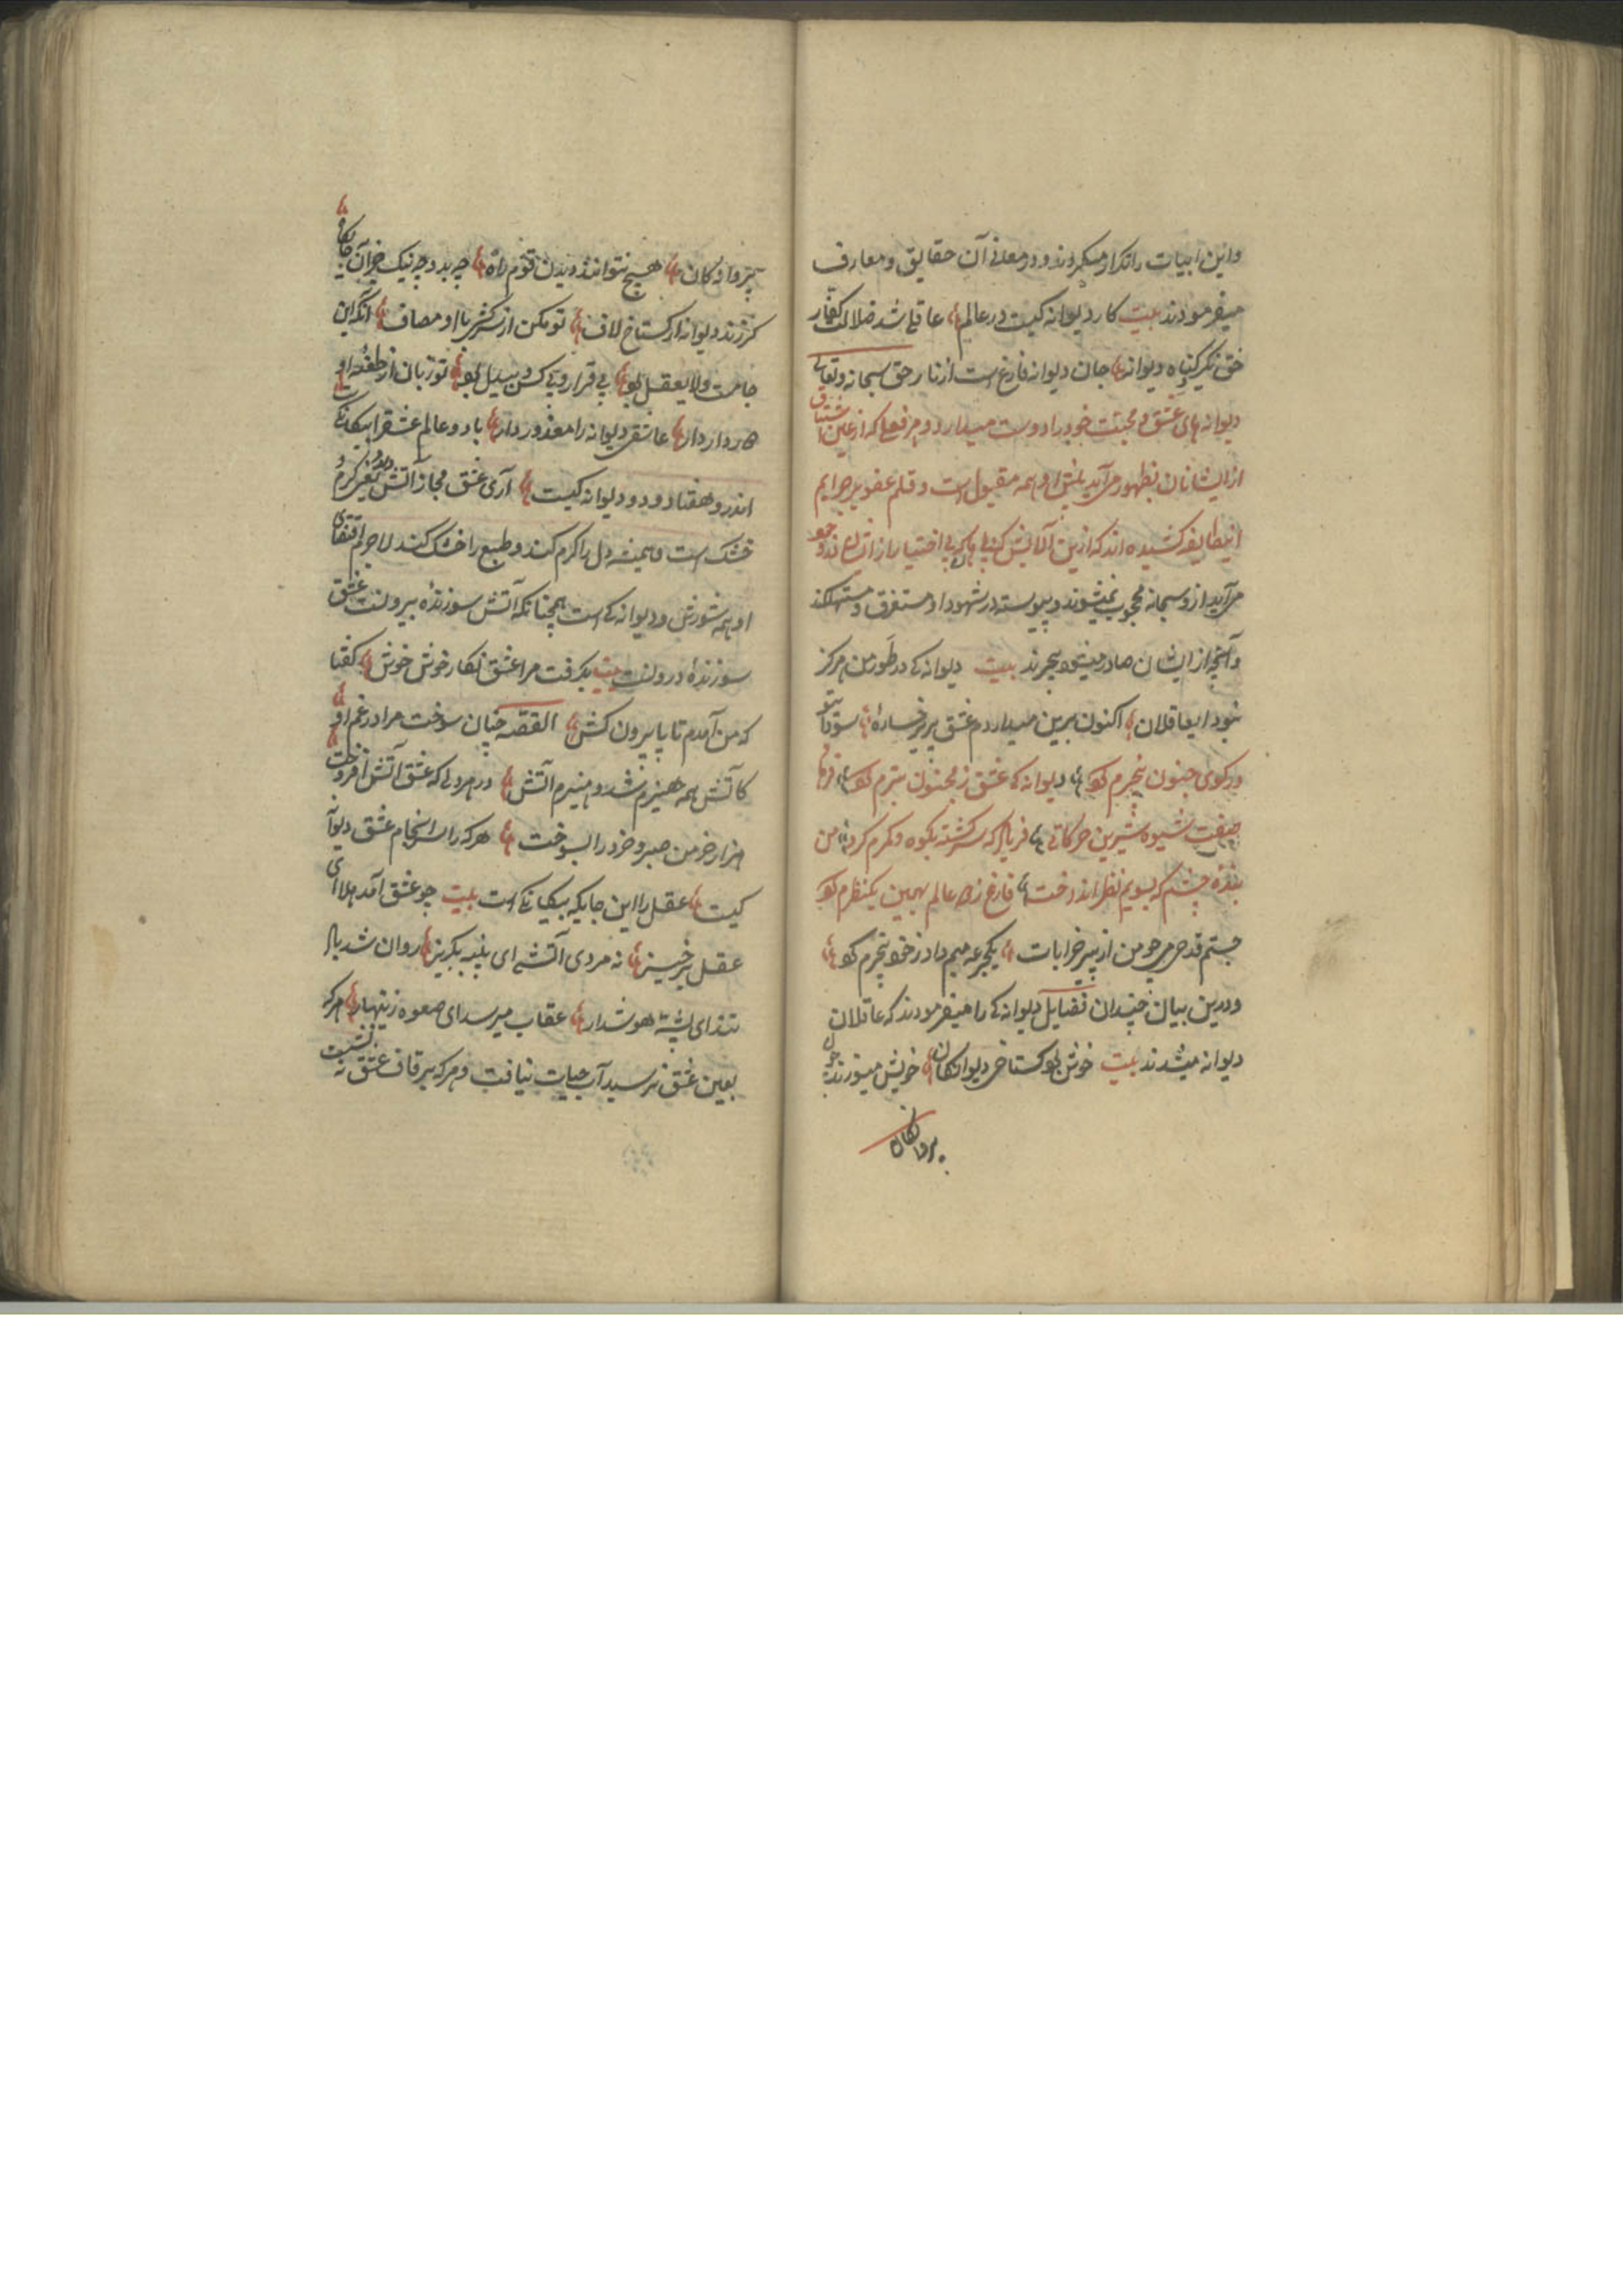 واین ابیات را تکرار میکردند و در معانی آن حقایق و معارف
میفرمودند بیت کار دیوانه کیست در عالم عاقلی شد ضلالت کفار
حق نگیرد گناه دیوانه جان دیوانه فارغ است از نار حق سبحانه وتعالی
دیوانه های عشق و محبت خود را دوست میدارد و هر فعلی که از عین اشتیاق
از ایشان بظهور می آید پیش او همه مقبول است و قلم عفو بر جرایم
اینطایفه کشیده اند که ازین آلایش بی اختیار از
می آید از و سبحانه محجوب نمیشوند و پیوسته در شهود او مستغرق و مستهلکند
و آنچه از ایشان صادر میشود بیخبرند بیت دیوانگی در طور من هرگز
نبود ایعاقلان اکنون برین میداردم عشق پریرخساره سودای
در کوی جنون بیخبرم کرد دیوانگی عشق ز مجنون بترم کرد فرهاد
صفت شیوه شیرین حرکاتی فریاد که سرگشته بکوه و کمرم کرد من
بنده چشم که بسویم نظر انداخت فارغ ز همه عالم بهمین یکنظرم کرد
جستم قدحی می چو من از پیر خرابات یکجرعه میم داد ز خود بیخبرم کرد
و درین بیان چندان فضایل دیوانگی را میفرمودند که عاقلان
دیوانه میشدند بیت خوش بود گستاخی دیوانگان خویش میسوزند چون
پروانگان
پروانگان هیچ نتوانند دیدن قوم راه چه بد و چه نیک جز آن جایگاه
گر زند دیوانه گستاخ لاف تو مکن از سرکشی با او مصاف آنکه این
جا مست ولایعقل بود بی قرار و بی کس و بیدل بود تو زبان از طعنه او
دور دار عاشق دیوانه را معذور دار با دو عالم عشق را بیگانگی
اندرو هفتاد و دو دیوانگیست آری عشق مجاز آتش دیگر گرم و
خشک است و همیشه دل را گرم کند و طبع را خشک کند لاجرم اقتضای
او همه شورش و دیوانگی است همچنانکه آتش سوزنده بیرونست عشق
سوزنده درونست بیت بگرفت مرا عشق نگار خوش خوش گفتا
که من آمدم تا پا بیرون کش القصه چنان سوخت مرا در غم او
کاتش همه هیزم شد و هیزم آتش در هر دلی که عشق آتش افروخت
هزار خرمن صبر و خرد را بسوخت هر که را سرانجام عشق دیوانه
کیست عقل را این جایگه بیگانگی است بیت چو عشق آمد هلا ای
عقل برخیز نه مردی آتشی ای پنبه بگریز روان شد باد
تند ای پشه هوشدار عقاب میرسد ای صعوه زینهار هر که
بعین عشق نرسید آب حیات نیافت و هر که بر قاف عشق نه نشست